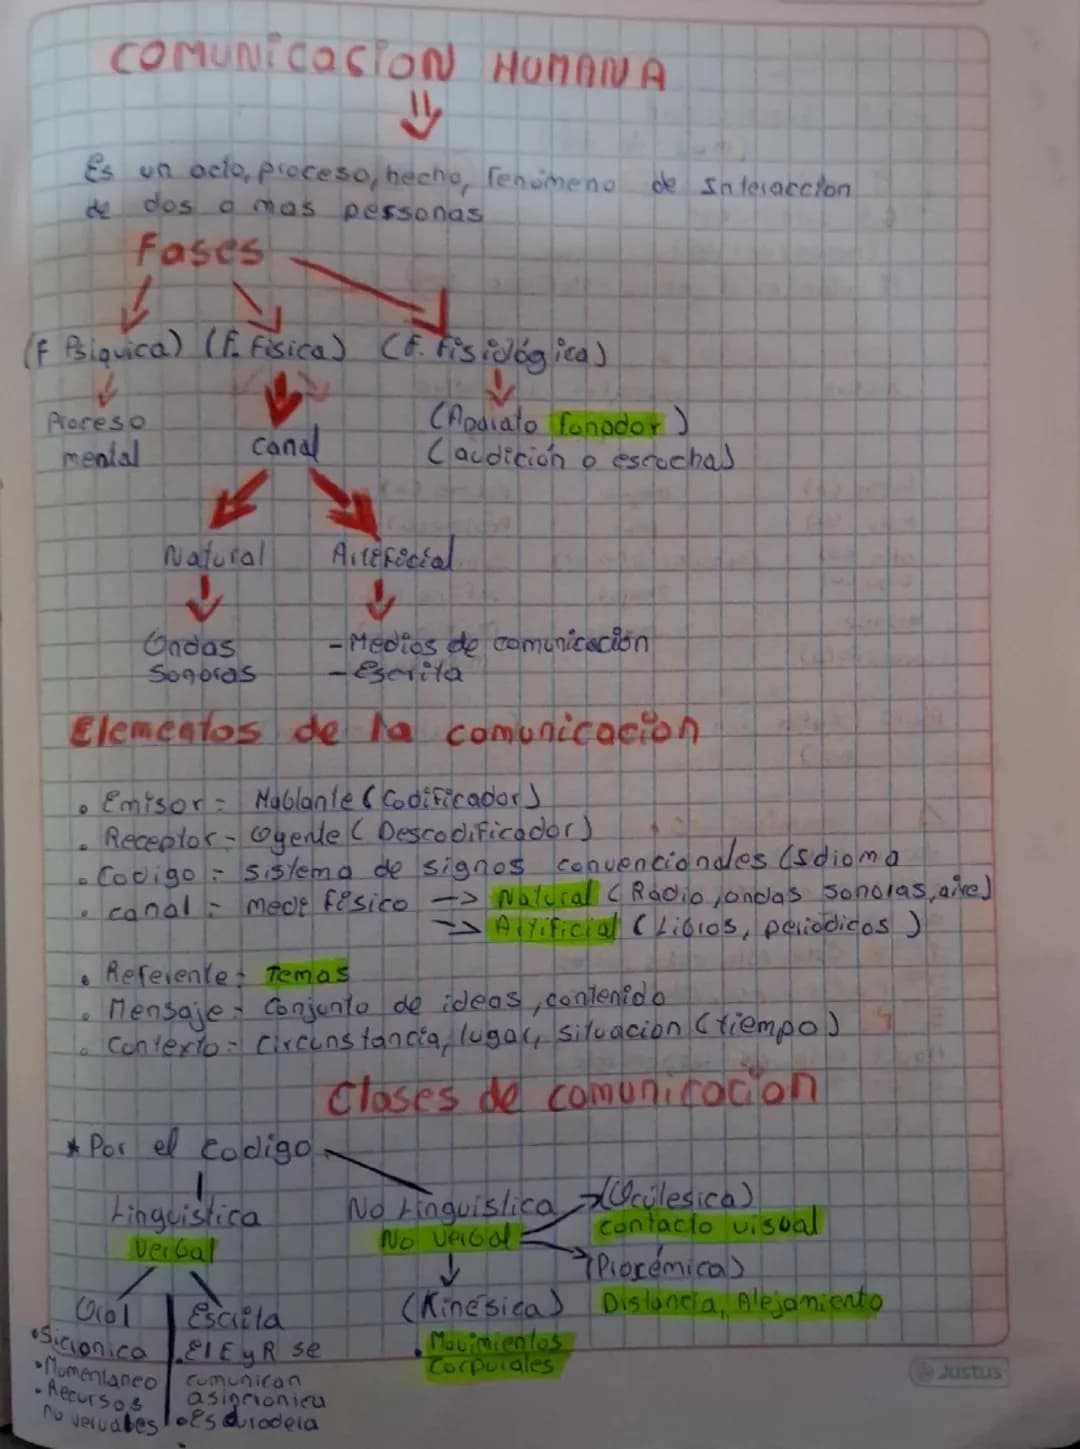 COMUNICACION HUMANA
Es un acto, proceso, hecho, fenomeno de Interaccion
de dos o mas personas
Fases
(F Psiquica) (F. Fisica) (F. Fisiológica)
Proceso
mental
canal
(Aparato fonador)
(audición o escucha)
Natural Artificial
Ondas
Sonoras
- Medios de comunicación
- Escrita
Elementos de la comunicación
• Emisor = Hablante (Codificador)
• Receptor - Oyente ( Descodificador)
• Codigo = sistema de signos convencionales (Idioma
• canal = medi fisico -> Natural (Radio, ondas sonoras, aire)
-> Artificial (Libros, periódicos )
• Referente = Temas
• Mensaje - Conjunto de ideas, contenido
• Contexto = Circunstancia, lugar, situacion (tiempo)
Clases de comunicacion
* Por el Codigo
Linguistica
Verbal
No Linguistica
No verbal
(Ocúlesica)
contacto visual
(Proxémica)
Distancia, Alejamiento
(Kinésica)
• Movimientos
Corporales
Oral
• Sicronica
• Momentaneo
• Recursos
no verbales
Escrita
• El E y R se
comunican
asincronica
• Es duradera
Justus